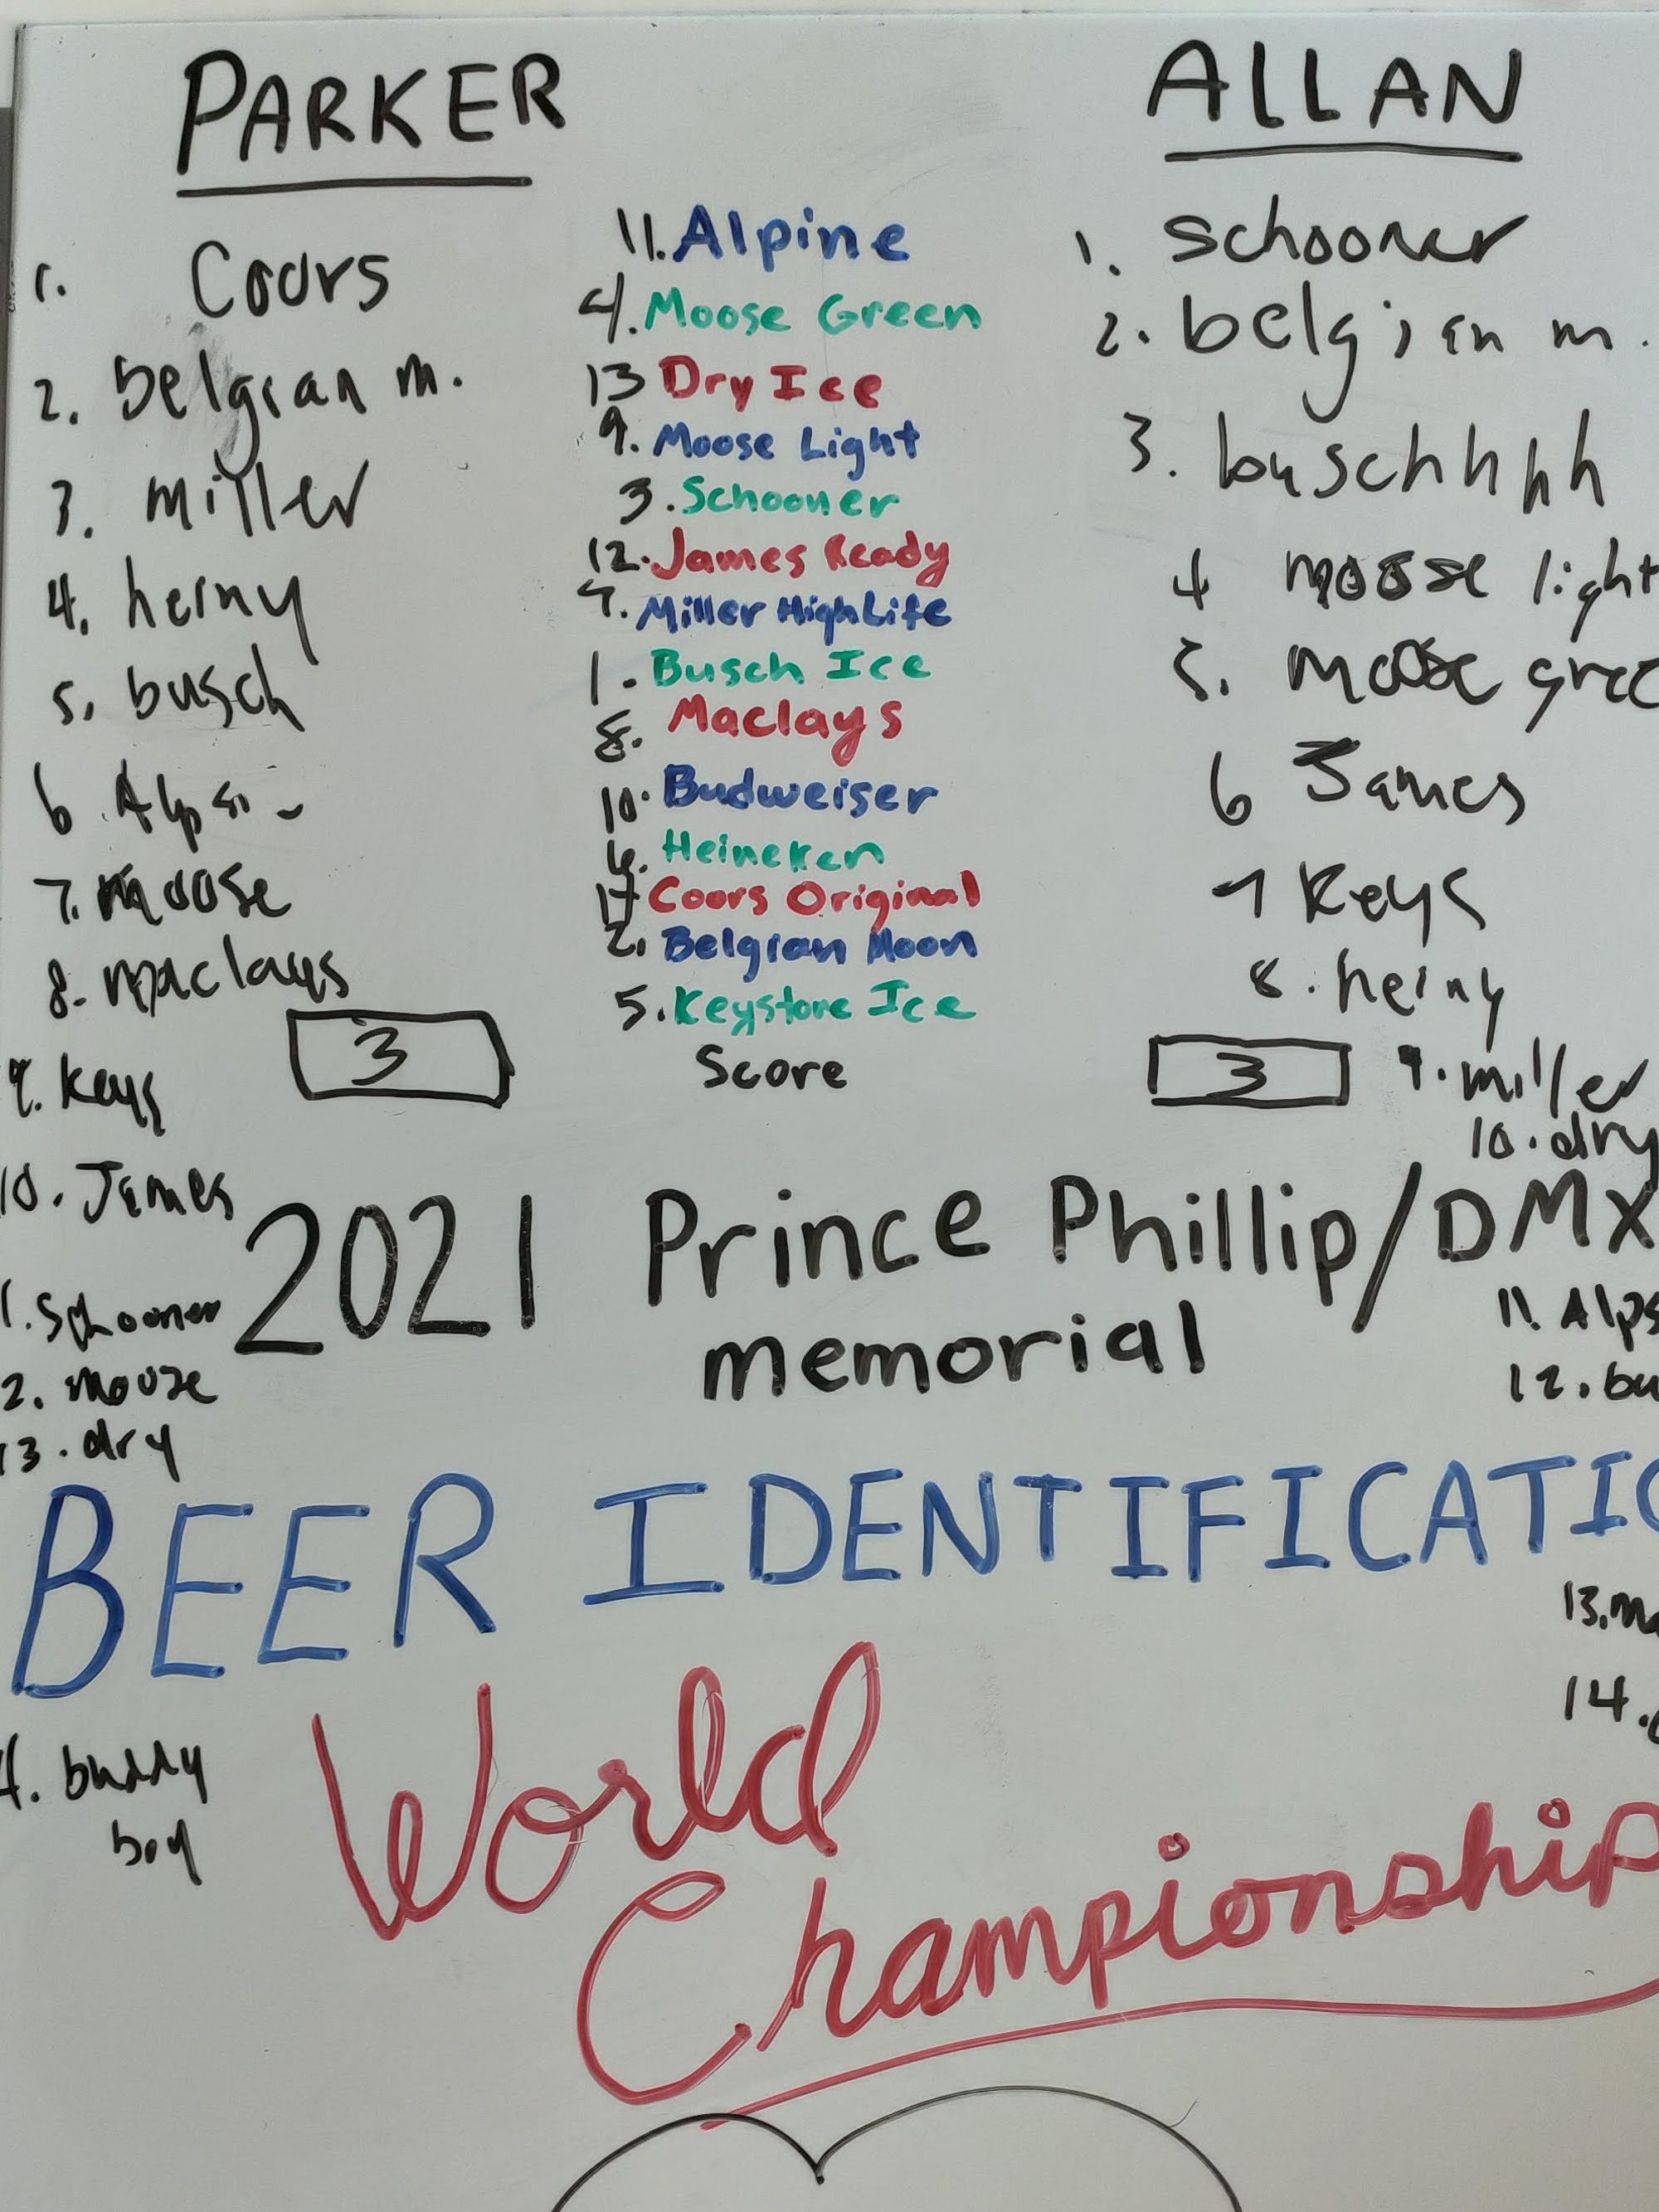 PARKER
1. Coors
2. belgian m.
3. miller
4. heiny
5. busch
6. Alpsi -
7. moose
8. maclays
9. Keys
3
10. James
1. Schooner
2. moose
13. dry
4. buddy
boy
11. Alpine
4. Moose Green
13 Dry Ice
9. Moose Light
3. Schooner
12. James Ready
7. Miller High Life
1. Busch Ice
8. Maclays
10. Budweiser
6. Heineken
14 Coors Original
2. Belgian Moon
5. Keystone Ice
Score
ALLAN
1. schooner
2. belgian m.
3. buschhhh
4 moose light
5. moose gree
6 James
7 Keys
8. heiny
3
9. miller
10. dry
11. Alps
12. bu
13. m
14.
2021 Prince Phillip/DMX
memorial
BEER IDENTIFICATIO
World
Championship